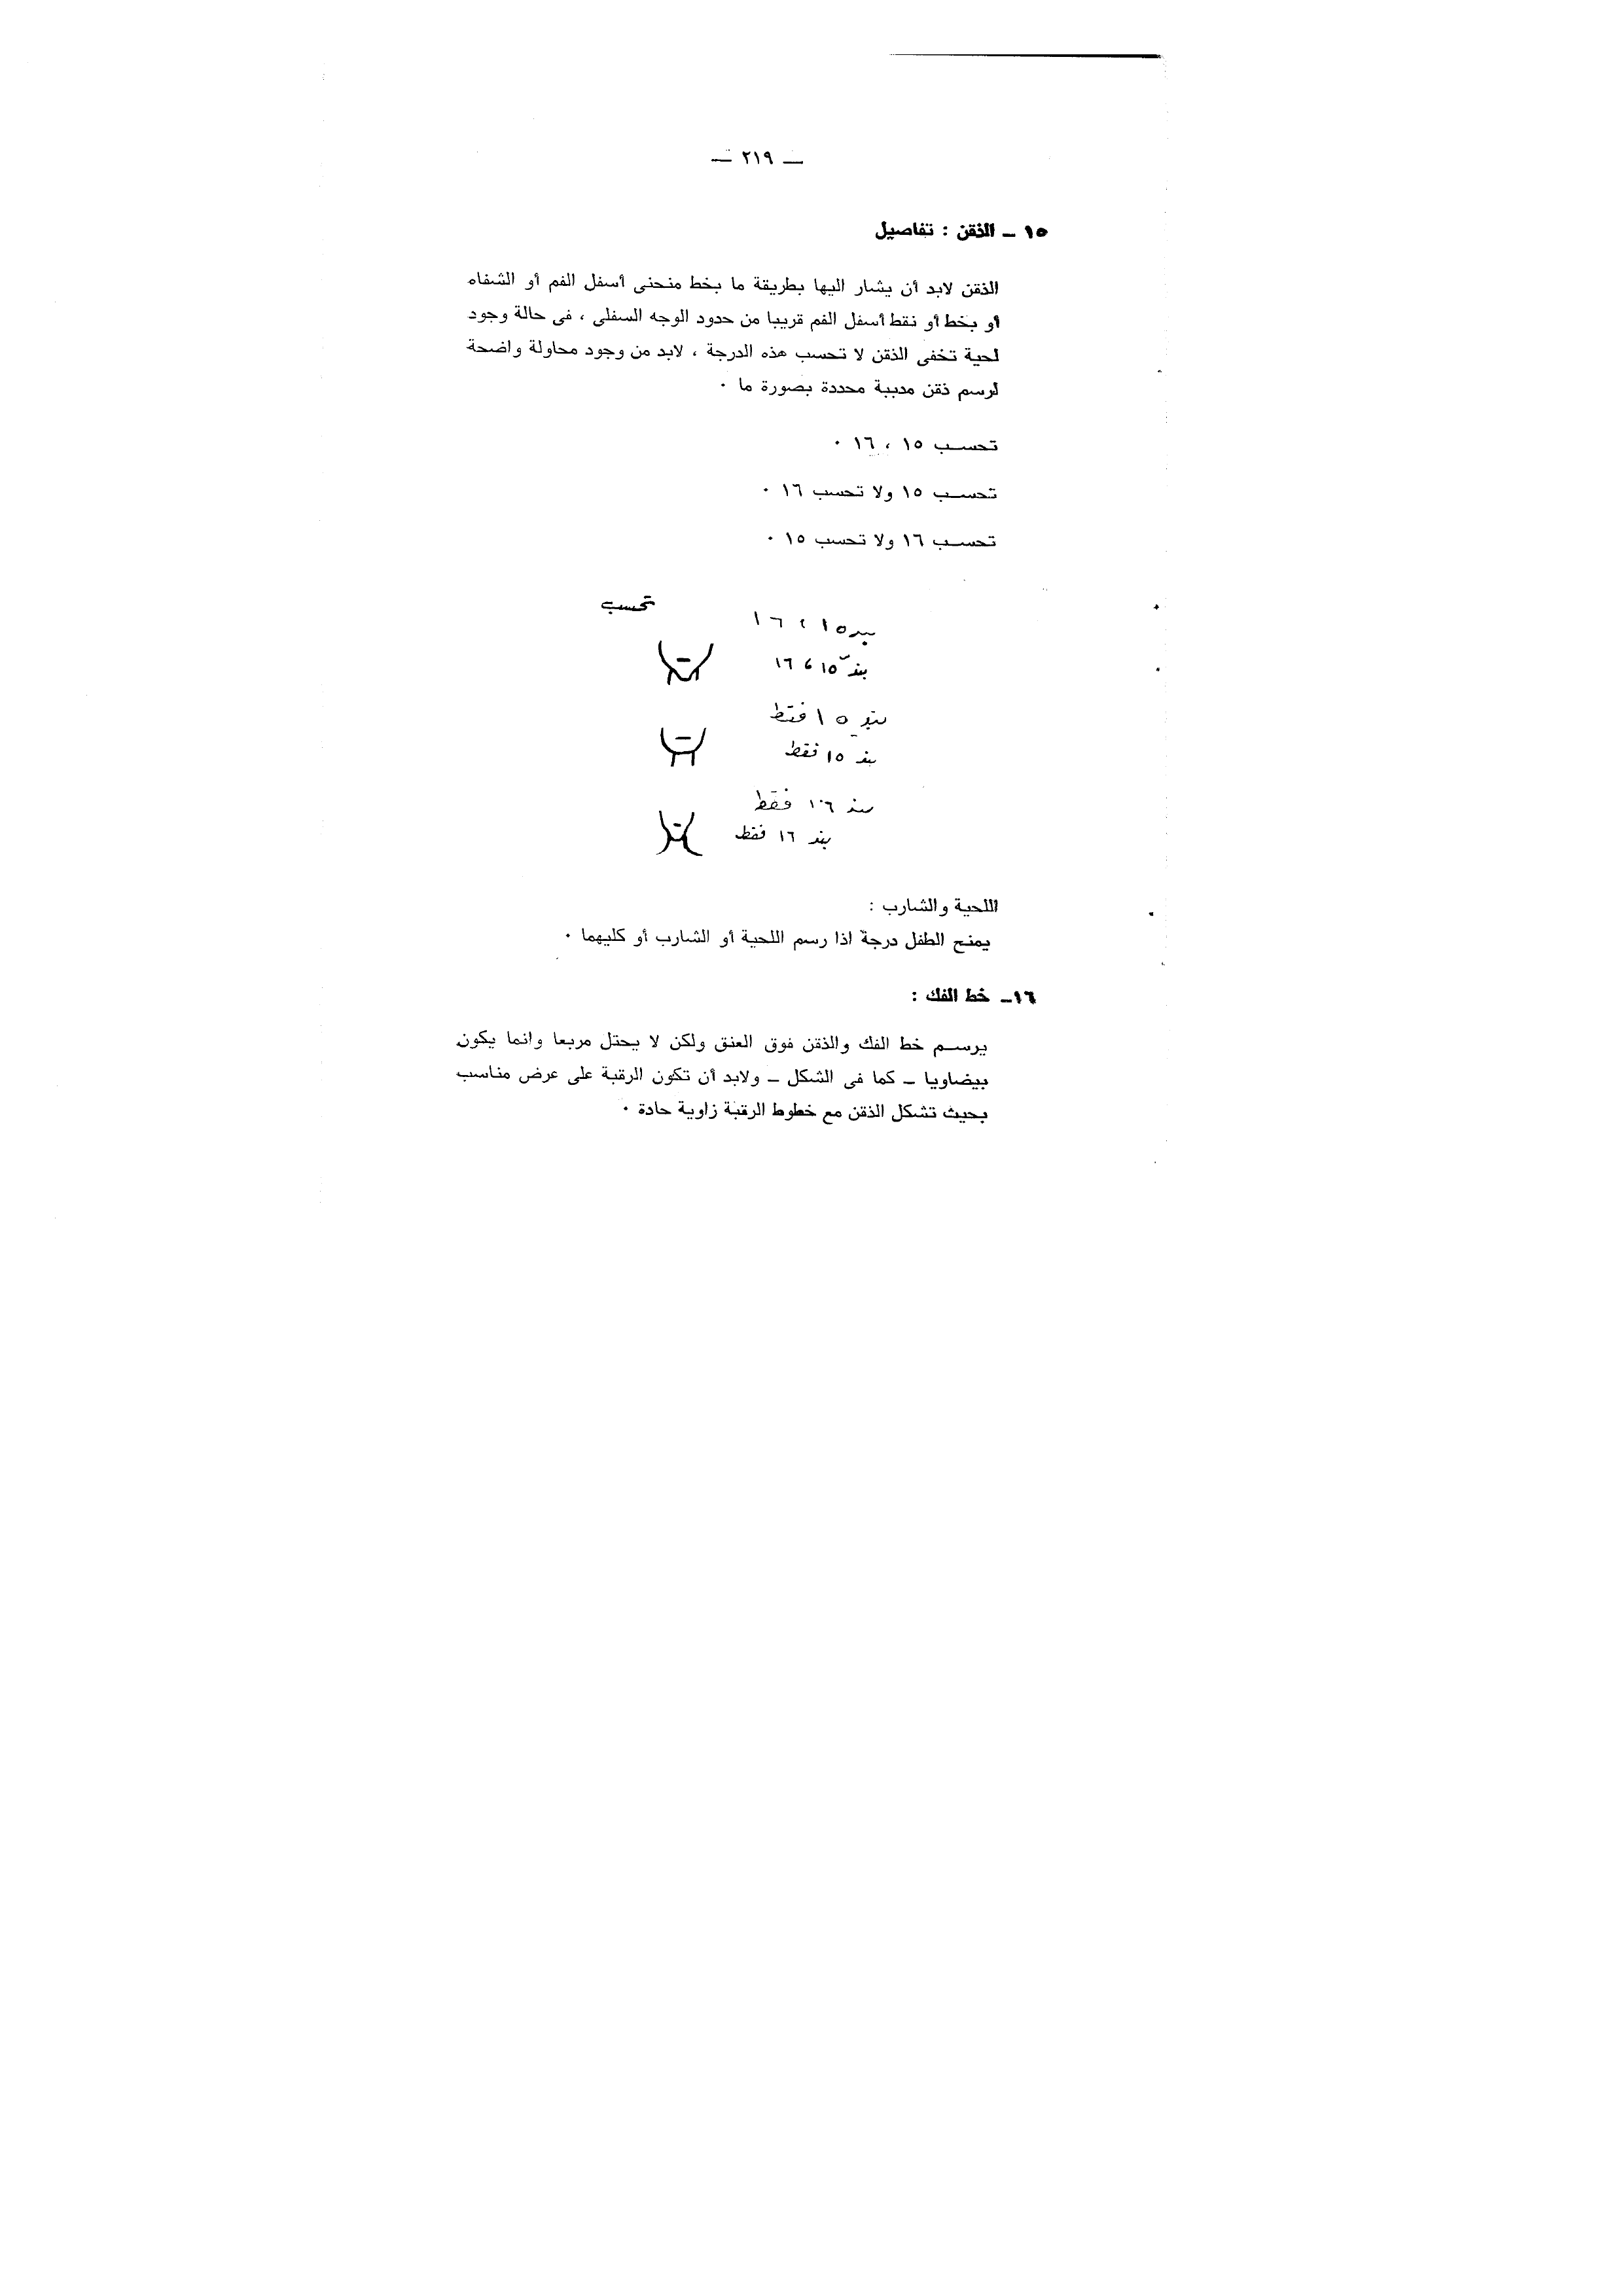 — ٢١٩ —
١٥ — الذقن : تفاصيل
الذقن لابد أن يشار اليها بطريقة ما بخط منحنى أسفل الفم أو الشفاه
أو بخط أو نقط أسفل الفم قريبا من حدود الوجه السفلى ، فى حالة وجود
لحية تخفى الذقن لا تحسب هذه الدرجة ، لابد من وجود محاولة واضحة
لرسم ذقن مدببة محددة بصورة ما ٠
تحسب ١٥ ، ١٦ ٠
تحسب ١٥ ولا تحسب ١٦ ٠
تحسب ١٦ ولا تحسب ١٥ ٠
تحسب
١٥ ، ١٦
بند ١٥ ، ١٦
بند ١٥ فقط
بند ١٥ فقط
بند ١٦ فقط
بند ١٦ فقط
اللحية والشارب :
يمنح الطفل درجة اذا رسم اللحية أو الشارب أو كليهما ٠
١٦ — خط الفك :
يرسم خط الفك والذقن فوق العنق ولكن لا يحتل مربعا وانما يكون
بيضاويا — كما فى الشكل — ولابد أن تكون الرقبة على عرض مناسب
بحيث تشكل الذقن مع خطوط الرقبة زاوية حادة ٠